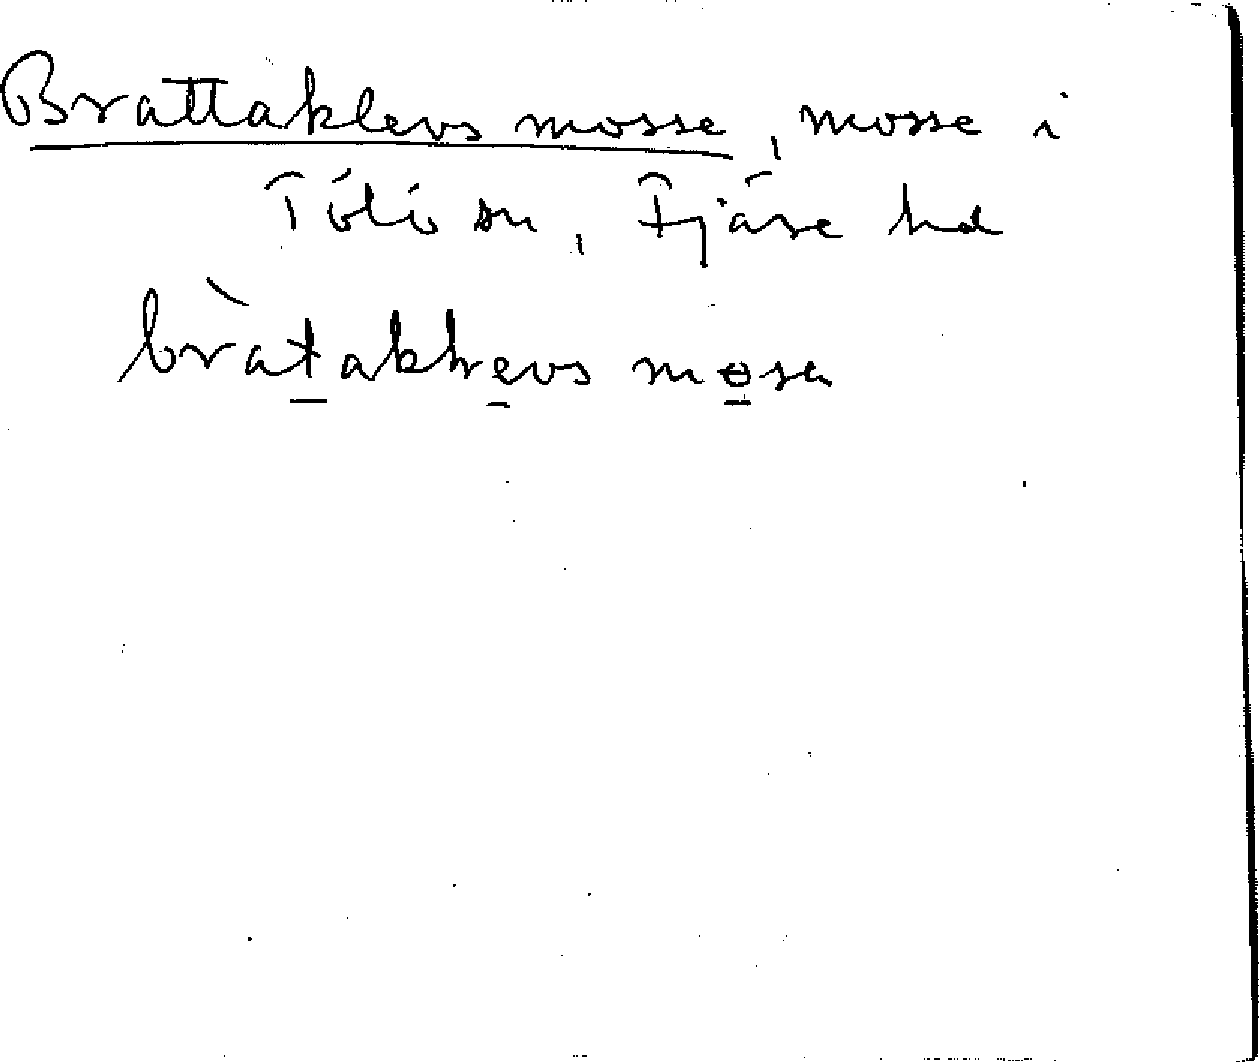 Brattaklevs mosse, mosse i
Tölö sn, Fjäre hd
bràtaklevs mosa